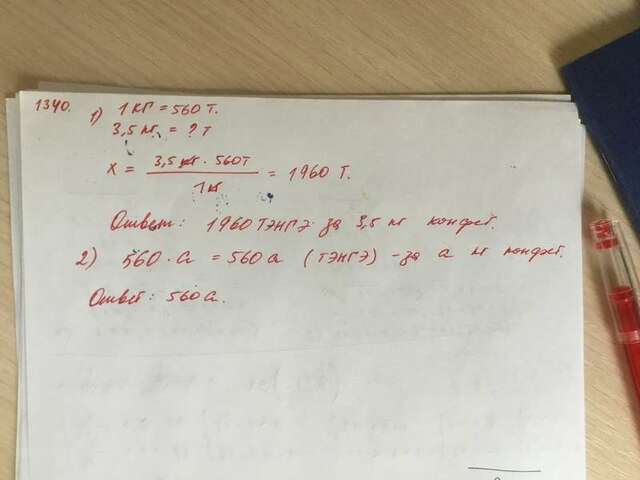 1340. 1) 1 кг = 560 т.
3,5 кг = ? т
x = 3,5 кг · 560т / 1 кг = 1960 т.
Ответ: 1960 тэнгэ за 3,5 кг конфет.
2) 560 · a = 560 a (тэнгэ) - за a кг конфет.
Ответ: 560 a.